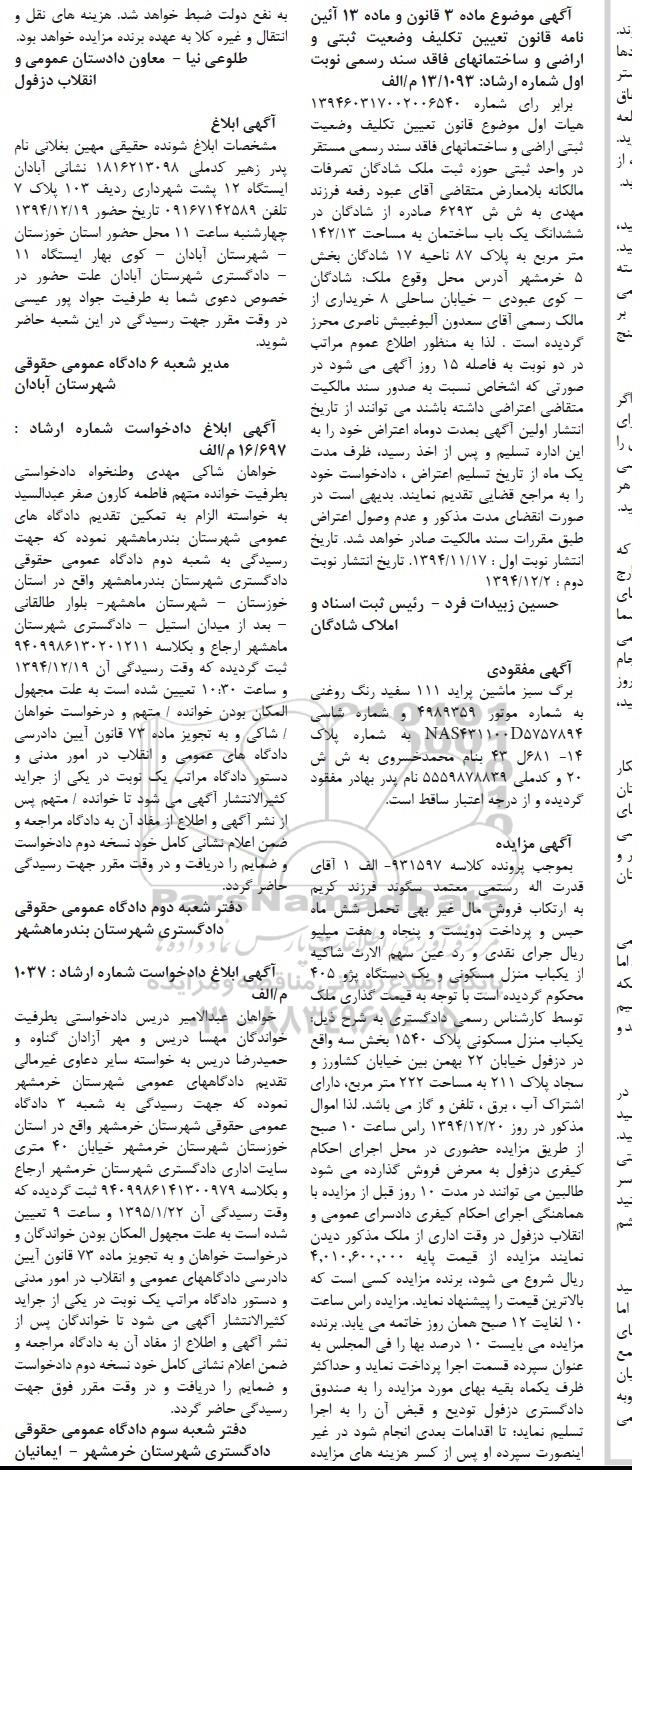 آگهی موضوع ماده ۳ قانون و ماده ۱۳ آئین
نامه قانون تعیین تکلیف وضعیت ثبتی و
اراضی و ساختمانهای فاقد سند رسمی نوبت
اول شماره ارشاد: ۱۳/۱۰۹۳ م/الف
برابر رای شماره ۱۳۹۴۶۰۳۱۷۰۰۲۰۰۶۵۴۰
هیات اول موضوع قانون تعیین تکلیف وضعیت
ثبتی اراضی و ساختمانهای فاقد سند رسمی مستقر
در واحد ثبتی حوزه ثبت ملک شادگان تصرفات
مالکانه بلامعارض متقاضی آقای عبود رفعه فرزند
مهدی به ش ش ۶۲۹۳ صادره از شادگان در
ششدانگ یک باب ساختمان به مساحت ۱۴۲/۱۳
متر مربع به پلاک ۸۷ ناحیه ۱۷ شادگان بخش
۵ خرمشهر آدرس محل وقوع ملک: شادگان
– کوی عبودی – خیابان ساحلی ۸ خریداری از
مالک رسمی آقای سعدون آلبوغبیش ناصری محرز
گردیده است . لذا به منظور اطلاع عموم مراتب
در دو نوبت به فاصله ۱۵ روز آگهی می شود در
صورتی که اشخاص نسبت به صدور سند مالکیت
متقاضی اعتراضی داشته باشند می توانند از تاریخ
انتشار اولین آگهی بمدت دوماه اعتراض خود را به
این اداره تسلیم و پس از اخذ رسید، ظرف مدت
یک ماه از تاریخ تسلیم اعتراض ، دادخواست خود
را به مراجع قضایی تقدیم نمایند. بدیهی است در
صورت انقضای مدت مذکور و عدم وصول اعتراض
طبق مقررات سند مالکیت صادر خواهد شد. تاریخ
انتشار نوبت اول : ۱۳۹۴/۱۱/۱۷. تاریخ انتشار نوبت
دوم : ۱۳۹۴/۱۲/۲
حسین زبیدات فرد – رئیس ثبت اسناد و
املاک شادگان
آگهی مفقودی
برگ سبز ماشین پراید ۱۱۱ سفید رنگ روغنی
به شماره موتور ۴۹۸۹۳۵۹ و شماره شاسی
NAS۴۳۱۱۰۰D۵۷۵۷۸۹۴ به شماره پلاک
۱۴- ۶۸۱ل ۴۳ بنام محمدخسروی به ش ش
۲۰ و کدملی ۵۵۵۹۸۷۸۸۳۹ نام پدر بهادر مفقود
گردیده و از درجه اعتبار ساقط است.
آگهی مزایده
بموجب پرونده کلاسه ۹۳۱۵۹۷- الف ۱ آقای
قدرت اله رستمی معتمد سگوند فرزند کریم
به ارتکاب فروش مال غیر بهی تحمل شش ماه
حبس و پرداخت دویست و پنجاه و هفت میلیو
ریال جرای نقدی و رد عین سهم الارث شاکیه
از یکباب منزل مسکونی و یک دستگاه پژو ۴۰۵
محکوم گردیده است با توجه به قیمت گذاری ملک
توسط کارشناس رسمی دادگستری به شرح ذیل:
یکباب منزل مسکونی پلاک ۱۵۴۰ بخش سه واقع
در دزفول خیابان ۲۲ بهمن بین خیابان کشاورز و
سجاد پلاک ۲۱۱ به مساحت ۲۲۲ متر مربع، دارای
اشتراک آب ، برق ، تلفن و گاز می باشد. لذا اموال
مذکور در روز ۱۳۹۴/۱۲/۲۰ راس ساعت ۱۰ صبح
از طریق مزایده حضوری در محل اجرای احکام
کیفری دزفول به معرض فروش گذارده می شود
طالبین می توانند در مدت ۱۰ روز قبل از مزایده با
هماهنگی اجرای احکام کیفری دادسرای عمومی و
انقلاب دزفول در وقت اداری از ملک مذکور دیدن
نمایند مزایده از قیمت پایه ۴,۰۱۰,۶۰۰,۰۰۰
ریال شروع می شود، برنده مزایده کسی است که
بالاترین قیمت را پیشنهاد نماید. مزایده راس ساعت
۱۰ لغایت ۱۲ صبح همان روز خاتمه می یابد. برنده
مزایده می بایست ۱۰ درصد بها را فی المجلس به
عنوان سپرده قسمت اجرا پرداخت نماید و حداکثر
ظرف یکماه بقیه بهای مورد مزایده را به صندوق
دادگستری دزفول تودیع و قبض آن را به اجرا
تسلیم نماید؛ تا اقدامات بعدی انجام شود در غیر
اینصورت سپرده او پس از کسر هزینه های مزایده
به نفع دولت ضبط خواهد شد. هزینه های نقل و
انتقال و غیره کلا به عهده برنده مزایده خواهد بود.
طلوعی نیا – معاون دادستان عمومی و
انقلاب دزفول
آگهی ابلاغ
مشخصات ابلاغ شونده حقیقی مهین بغلانی نام
پدر زهیر کدملی ۱۸۱۶۲۱۳۰۹۸ نشانی آبادان
ایستگاه ۱۲ پشت شهرداری ردیف ۱۰۳ پلاک ۷
تلفن ۰۹۱۶۷۱۴۲۵۸۹ تاریخ حضور ۱۳۹۴/۱۲/۱۹
چهارشنبه ساعت ۱۱ محل حضور استان خوزستان
– شهرستان آبادان – کوی بهار ایستگاه ۱۱
– دادگستری شهرستان آبادان علت حضور در
خصوص دعوی شما به طرفیت جواد پور عیسی
در وقت مقرر جهت رسیدگی در این شعبه حاضر
شوید.
مدیر شعبه ۶ دادگاه عمومی حقوقی
شهرستان آبادان
آگهی ابلاغ دادخواست شماره ارشاد :
۱۶/۶۹۷ م/الف
خواهان شاکی مهدی وطنخواه دادخواستی
بطرفیت خوانده متهم فاطمه کارون صفر عبدالسید
به خواسته الزام به تمکین تقدیم دادگاه های
عمومی شهرستان بندرماهشهر نموده که جهت
رسیدگی به شعبه دوم دادگاه عمومی حقوقی
دادگستری شهرستان بندرماهشهر واقع در استان
خوزستان – شهرستان ماهشهر- بلوار طالقانی
– بعد از میدان استیل – دادگستری شهرستان
ماهشهر ارجاع و بکلاسه ۹۴۰۹۹۸۶۱۳۰۲۰۱۲۱۱
ثبت گردیده که وقت رسیدگی آن ۱۳۹۴/۱۲/۱۹
و ساعت ۱۰:۳۰ تعیین شده است به علت مجهول
المکان بودن خوانده / متهم و درخواست خواهان
/ شاکی و به تجویز ماده ۷۳ قانون آیین دادرسی
دادگاه های عمومی و انقلاب در امور مدنی و
دستور دادگاه مراتب یک نوبت در یکی از جراید
کثیرالانتشار آگهی می شود تا خوانده / متهم پس
از نشر آگهی و اطلاع از مفاد آن به دادگاه مراجعه و
ضمن اعلام نشانی کامل خود نسخه دوم دادخواست
و ضمایم را دریافت و در وقت مقرر جهت رسیدگی
حاضر گردد.
دفتر شعبه دوم دادگاه عمومی حقوقی
دادگستری شهرستان بندرماهشهر
آگهی ابلاغ دادخواست شماره ارشاد : ۱۰۳۷
م/الف
خواهان عبدالامیر دریس دادخواستی بطرفیت
خواندگان مهسا دریس و مهر آزادان گناوه و
حمیدرضا دریس به خواسته سایر دعاوی غیرمالی
تقدیم دادگاههای عمومی شهرستان خرمشهر
نموده که جهت رسیدگی به شعبه ۳ دادگاه
عمومی حقوقی شهرستان خرمشهر واقع در استان
خوزستان شهرستان خرمشهر خیابان ۴۰ متری
سایت اداری دادگستری شهرستان خرمشهر ارجاع
و بکلاسه ۹۴۰۹۹۸۶۱۴۱۳۰۰۹۷۹ ثبت گردیده که
وقت رسیدگی آن ۱۳۹۵/۱/۲۲ و ساعت ۹ تعیین
شده است به علت مجهول المکان بودن خواندگان و
درخواست خواهان و به تجویز ماده ۷۳ قانون آیین
دادرسی دادگاههای عمومی و انقلاب در امور مدنی
و دستور دادگاه مراتب یک نوبت در یکی از جراید
کثیرالانتشار آگهی می شود تا خواندگان پس از
نشر آگهی و اطلاع از مفاد آن به دادگاه مراجعه و
ضمن اعلام نشانی کامل خود نسخه دوم دادخواست
و ضمایم را دریافت و در وقت مقرر فوق جهت
رسیدگی حاضر گردد.
دفتر شعبه سوم دادگاه عمومی حقوقی
دادگستری شهرستان خرمشهر – ایمانیان
ParsNamadData
پایگاه اطلاع رسانی مناقصه و مزایده